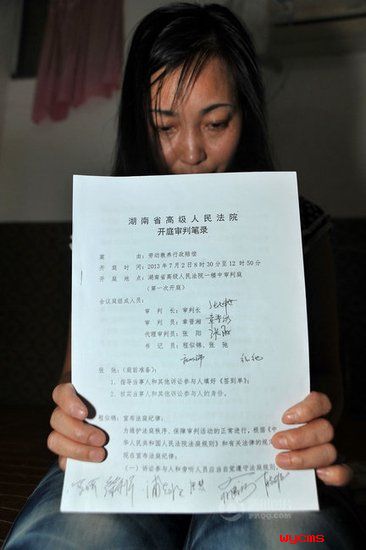 湖南省高级人民法院
开庭审判笔录
案 由: 劳动教养行政赔偿
开 庭 时 间: 2013年7月2日8时30分至12时50分
开 庭 地 点: 湖南省高级人民法院一楼中审判庭
(第一次开庭)
合议庭组成人员:
审 判 长: 审判长
审 判 员: 章晋湘
代理审判员: 张 阳
书 记 员: 程似锦、张 弛
张 弛: (庭前准备):
1、指导当事人和其他诉讼参与人填好《签到单》;
2、核实当事人和其他诉讼参与人的身份。
程似锦: 宣布法庭纪律:
为维护法庭秩序, 保障审判活动的正常进行, 根据《中
华人民共和国人民法院法庭规则》和有关法律的规
在宣布法庭纪律。
(一)诉讼参与人和旁听人员应当自觉遵守法庭规则,
wycms